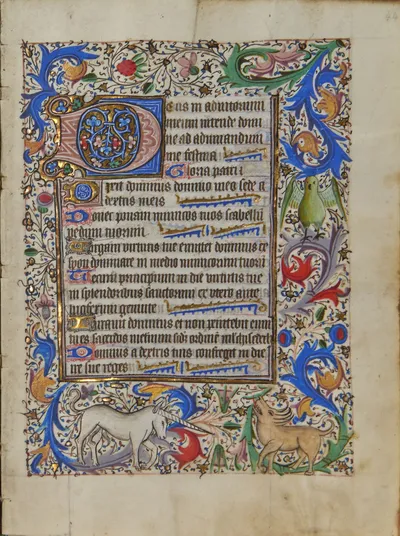 Deus in adiutorium
meum intende domi
ne ad adiuuandum
me festina
Gloria patri
Dixit dominus domino meo sede a
dextris meis
Donec ponam inimicos tuos scabellu
pedum tuorum
Virgam virtutis tue emittet dominus ex
syon dominare in medio inimicorum tuoru
Tecum principium in die virtutis tue
in splendoribus sanctorum ex utero ante
luciferum genui te
Iurauit dominus et non penitebit eum
tu es sacerdos in eternum secundum ordinem melchisedech
Dominus a dextris tuis confregit in die
ire sue reges